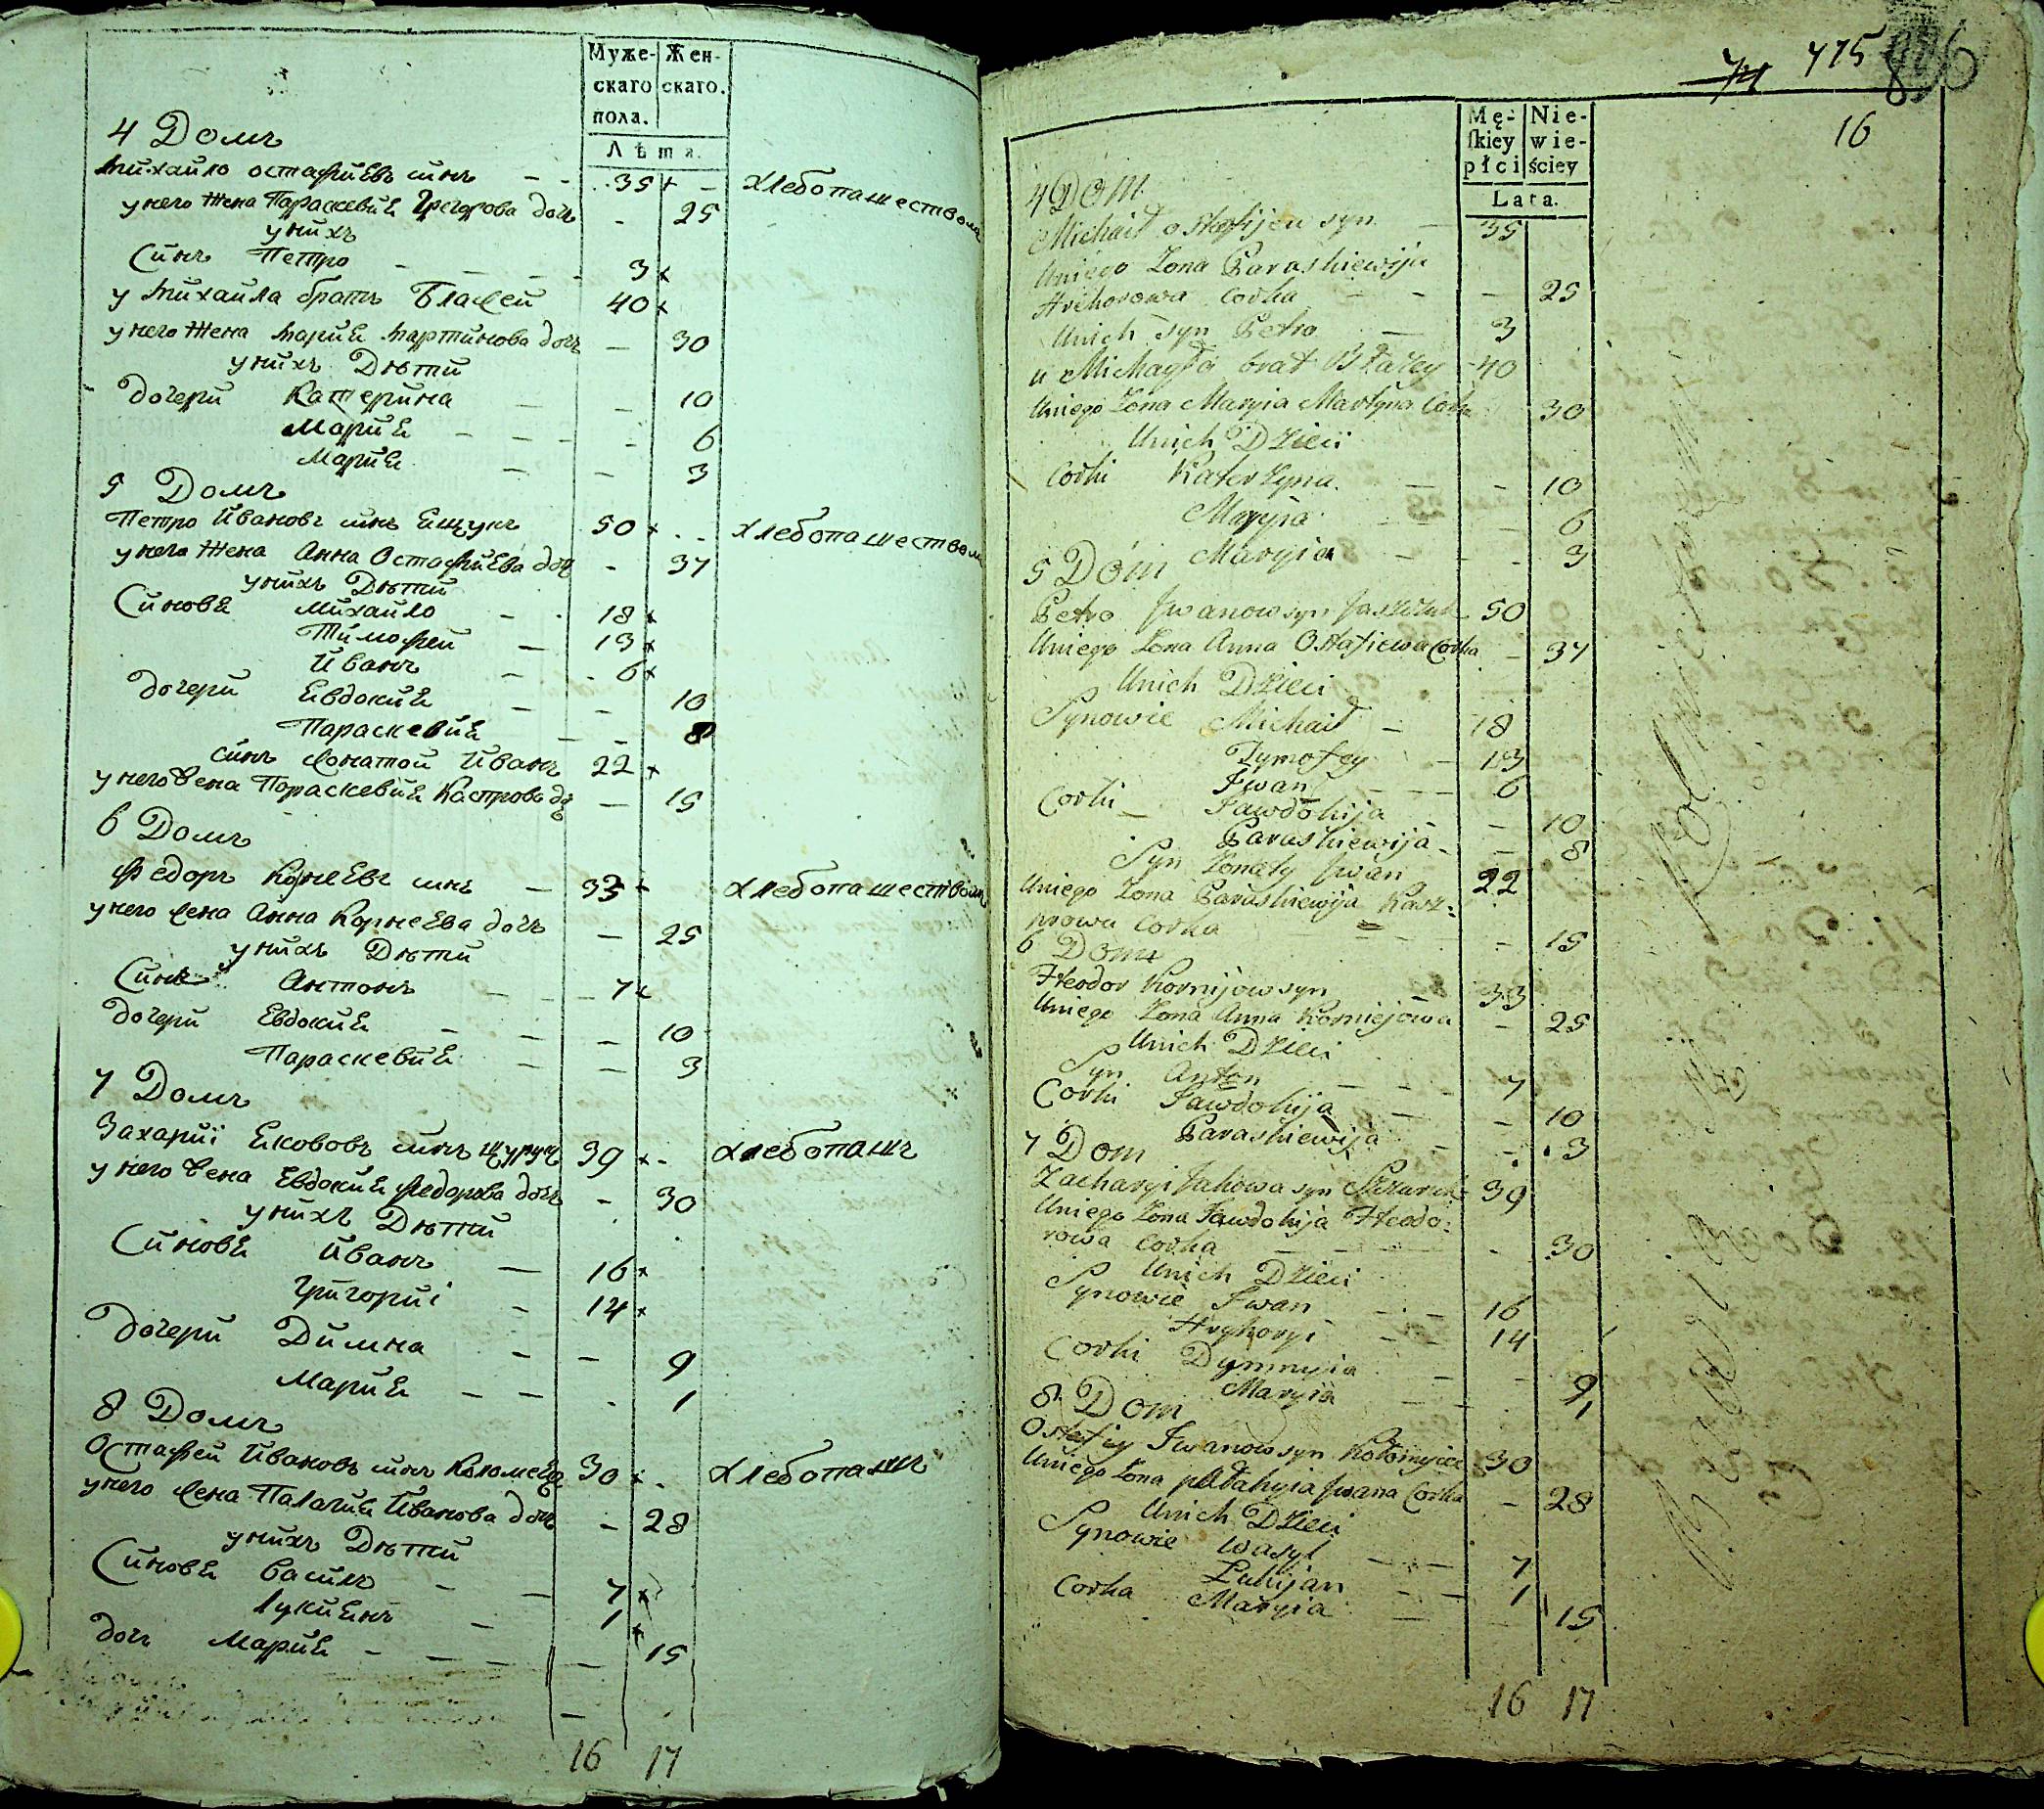 Муже-
скаго
пола.
Жен-
скаго.
Лѣта.
4 Домъ
Михайло остафиевъ синъ - - 35 + - хлебопашествомъ
у него жена Параскевия Григорова дочь - 25
у нихъ
Синъ Петро - - - - 3 x
у Михайла братъ Блажей 40 x
у него жена Мария Мартинова дочь - 30
у нихъ Дѣти
дочери Катерина - - 10
Мария - - - - 6
Мария - - 3
5 Домъ
Петро Ивановъ синъ Ящукъ 50 x - - хлебопашествомъ
у него жена Анна Остафиева доч - 37
у нихъ Дѣти
Синовя Михайло - - 18 x
Тимофей - 13 x
Иванъ - - 6 x
дочери Евдокия - - 10
Параскевия - - 8
синъ жонатой Иванъ 22 x
у него жена Параскевия Каспрова доч - 15
6 Домъ
Федоръ Корнеевъ синъ - 33 + хлебопашествомъ
у него жена Анна Корнеева дочь - 25
у нихъ Дѣти
Синъ Антонъ - - - 7 x
дочери Евдокия - - - 10
Параскевия - - 3
7 Домъ
Захарий Якововъ синъ Щурукъ 39 x - хлебопашъ
у него жена Евдокия Федорова дочь - 30
у нихъ Дѣти
Синовя Иванъ - 16 x
Григорий - 14 x
дочери Димна - - 9
Мария - - - 1
8 Домъ
Остафей Ивановъ синъ Коломеецъ 30 x - хлебопашъ
у него жена Палагия Иванова дочь - 28
у нихъ Дѣти
Синовя Василь - - 7 x
Лукиянъ - 1 x
дочь Мария - - - - 15
16 17
74 475
16
Mę-
ſkiey
płci
Nie-
wie-
ściey
Lata.
4 Dom
Michaił ostafijew syn - 35
Uniego Zona Paraskiewija
Hrehorowa corka - - - 25
Unich syn Petro - 3
u Michayła brat Błażey - 40
Uniego Zona Maryia Martyna Corka 30
Unich Dzieci
Corki Katerzyna - - 10
Maryia - - 6
Maryia - - - 3
5 Dom
Petro Jwanow syn Jaszczuk 50
Uniego Zona Anna Ostafiewa Corka - 37
Unich Dzieci
Synowie Michaił - 18
Tymofey - 13
Jwan - - - 6
Corki - Jawdokija - - 10
Paraskiewija - - 8
Syn Zonaty Jwan 22
Uniego Zona Paraskiewija Kasz=
prowa corka - - - 15
6 Dom
Fteodor Kornijow syn - 33
Uniego Zona Anna Korniejowa - 25
Unich Dzieci
Syn Anton - - - 7
Corki Jawdokija - - 10
Paraskiewija - - 3
7 Dom
Zacharyi Jakowa syn Szczuruk 39
Uniego Zona Jawdokija Fteodo=
rowa corka - - - 30
Unich Dzieci
Synowie Jwan - - - 16
Hryhoryi - - 14
Corki Dymnyia - - 9
Maryia - - - 1
8 Dom
Ostafiey Jwanow syn Kołomyiec 30
Uniego Zona pałahyia Jwana Corka - 28
Unich Dzieci
Synowie Wasyl - - - 7
Łukijan - - 1
Corka Maryia - - 15
16 17